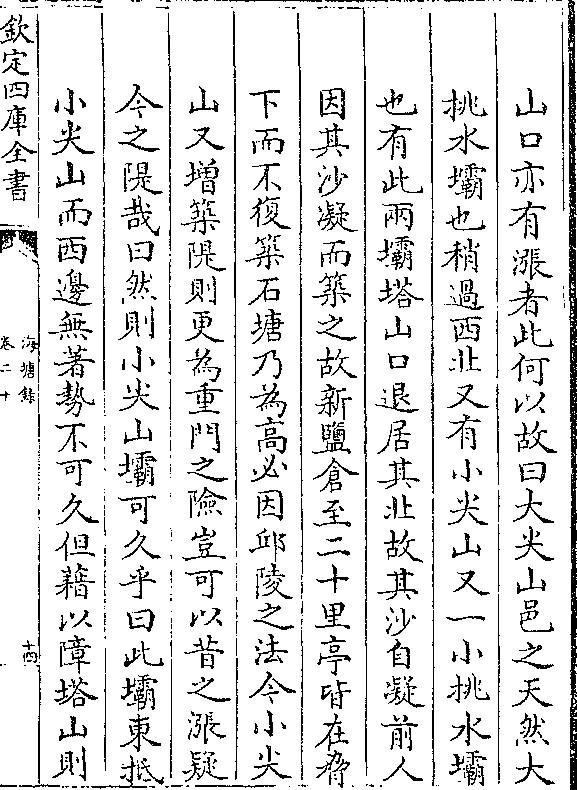 山口亦有漲者此何以故曰大尖山邑之天然大
挑水壩也稍過西北又有小尖山又一小挑水壩
也有此兩壩塔山口退居其北故其沙自凝前人
因其沙凝而築之故新鹽倉至二十里亭皆在脅
下而不復築石塘乃為高必因邱陵之法今小尖
山又增築隄則更為重門之險豈可以昔之漲疑
今之隄哉曰然則小尖山壩可久乎曰此壩東抵
小尖山而西邊無著勢不可久但藉以障塔山則
欽定四庫全書
海塘錄
卷二十
十四